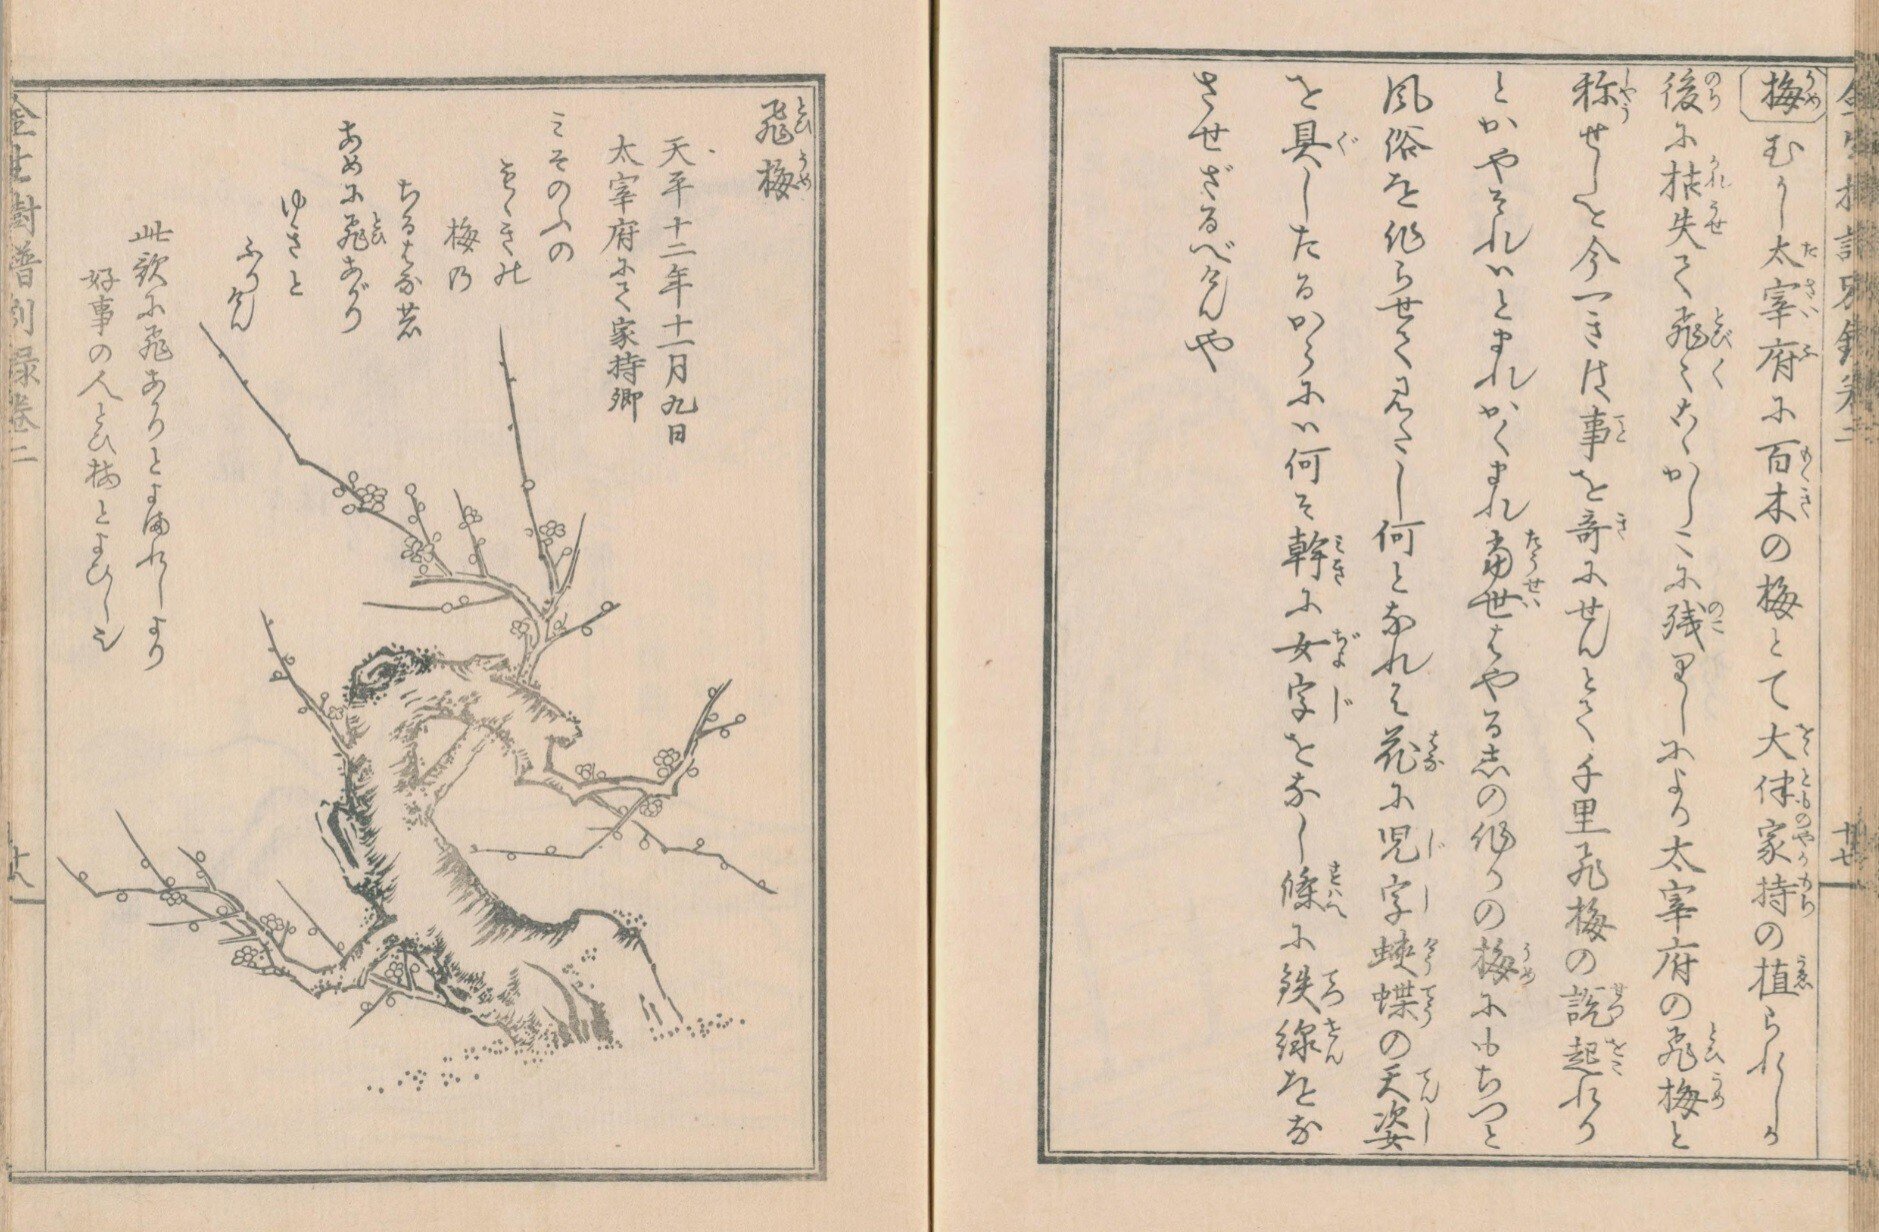 梅むかし太宰府に百木の梅とて大伴家持の植られしか
後に枯失て飛々こゝかしこに残りしにより太宰府の飛梅と
称せしを今一きは事を奇にせんとて千里飛梅の説起れり
とかやそれはとまれかくまれ当世はやる志の作りの梅にもちつと
風俗を作らせて見たし何となれは花に児字蛺蝶の天姿
を具したるからには何そ幹に女字をなし條に鉄線をな
させざるべけんや
金生樹譜別録巻二
十七
飛梅
天平十二年十一月九日
太宰府にて家持卿
みそのふの
もゝきの
梅乃
ちるはな共
あめに飛あがり
ゆきと
ふりけん
此歌に飛あかりとよまれしより
好事の人とひ梅とよひしも
金生樹譜別録巻二
十八